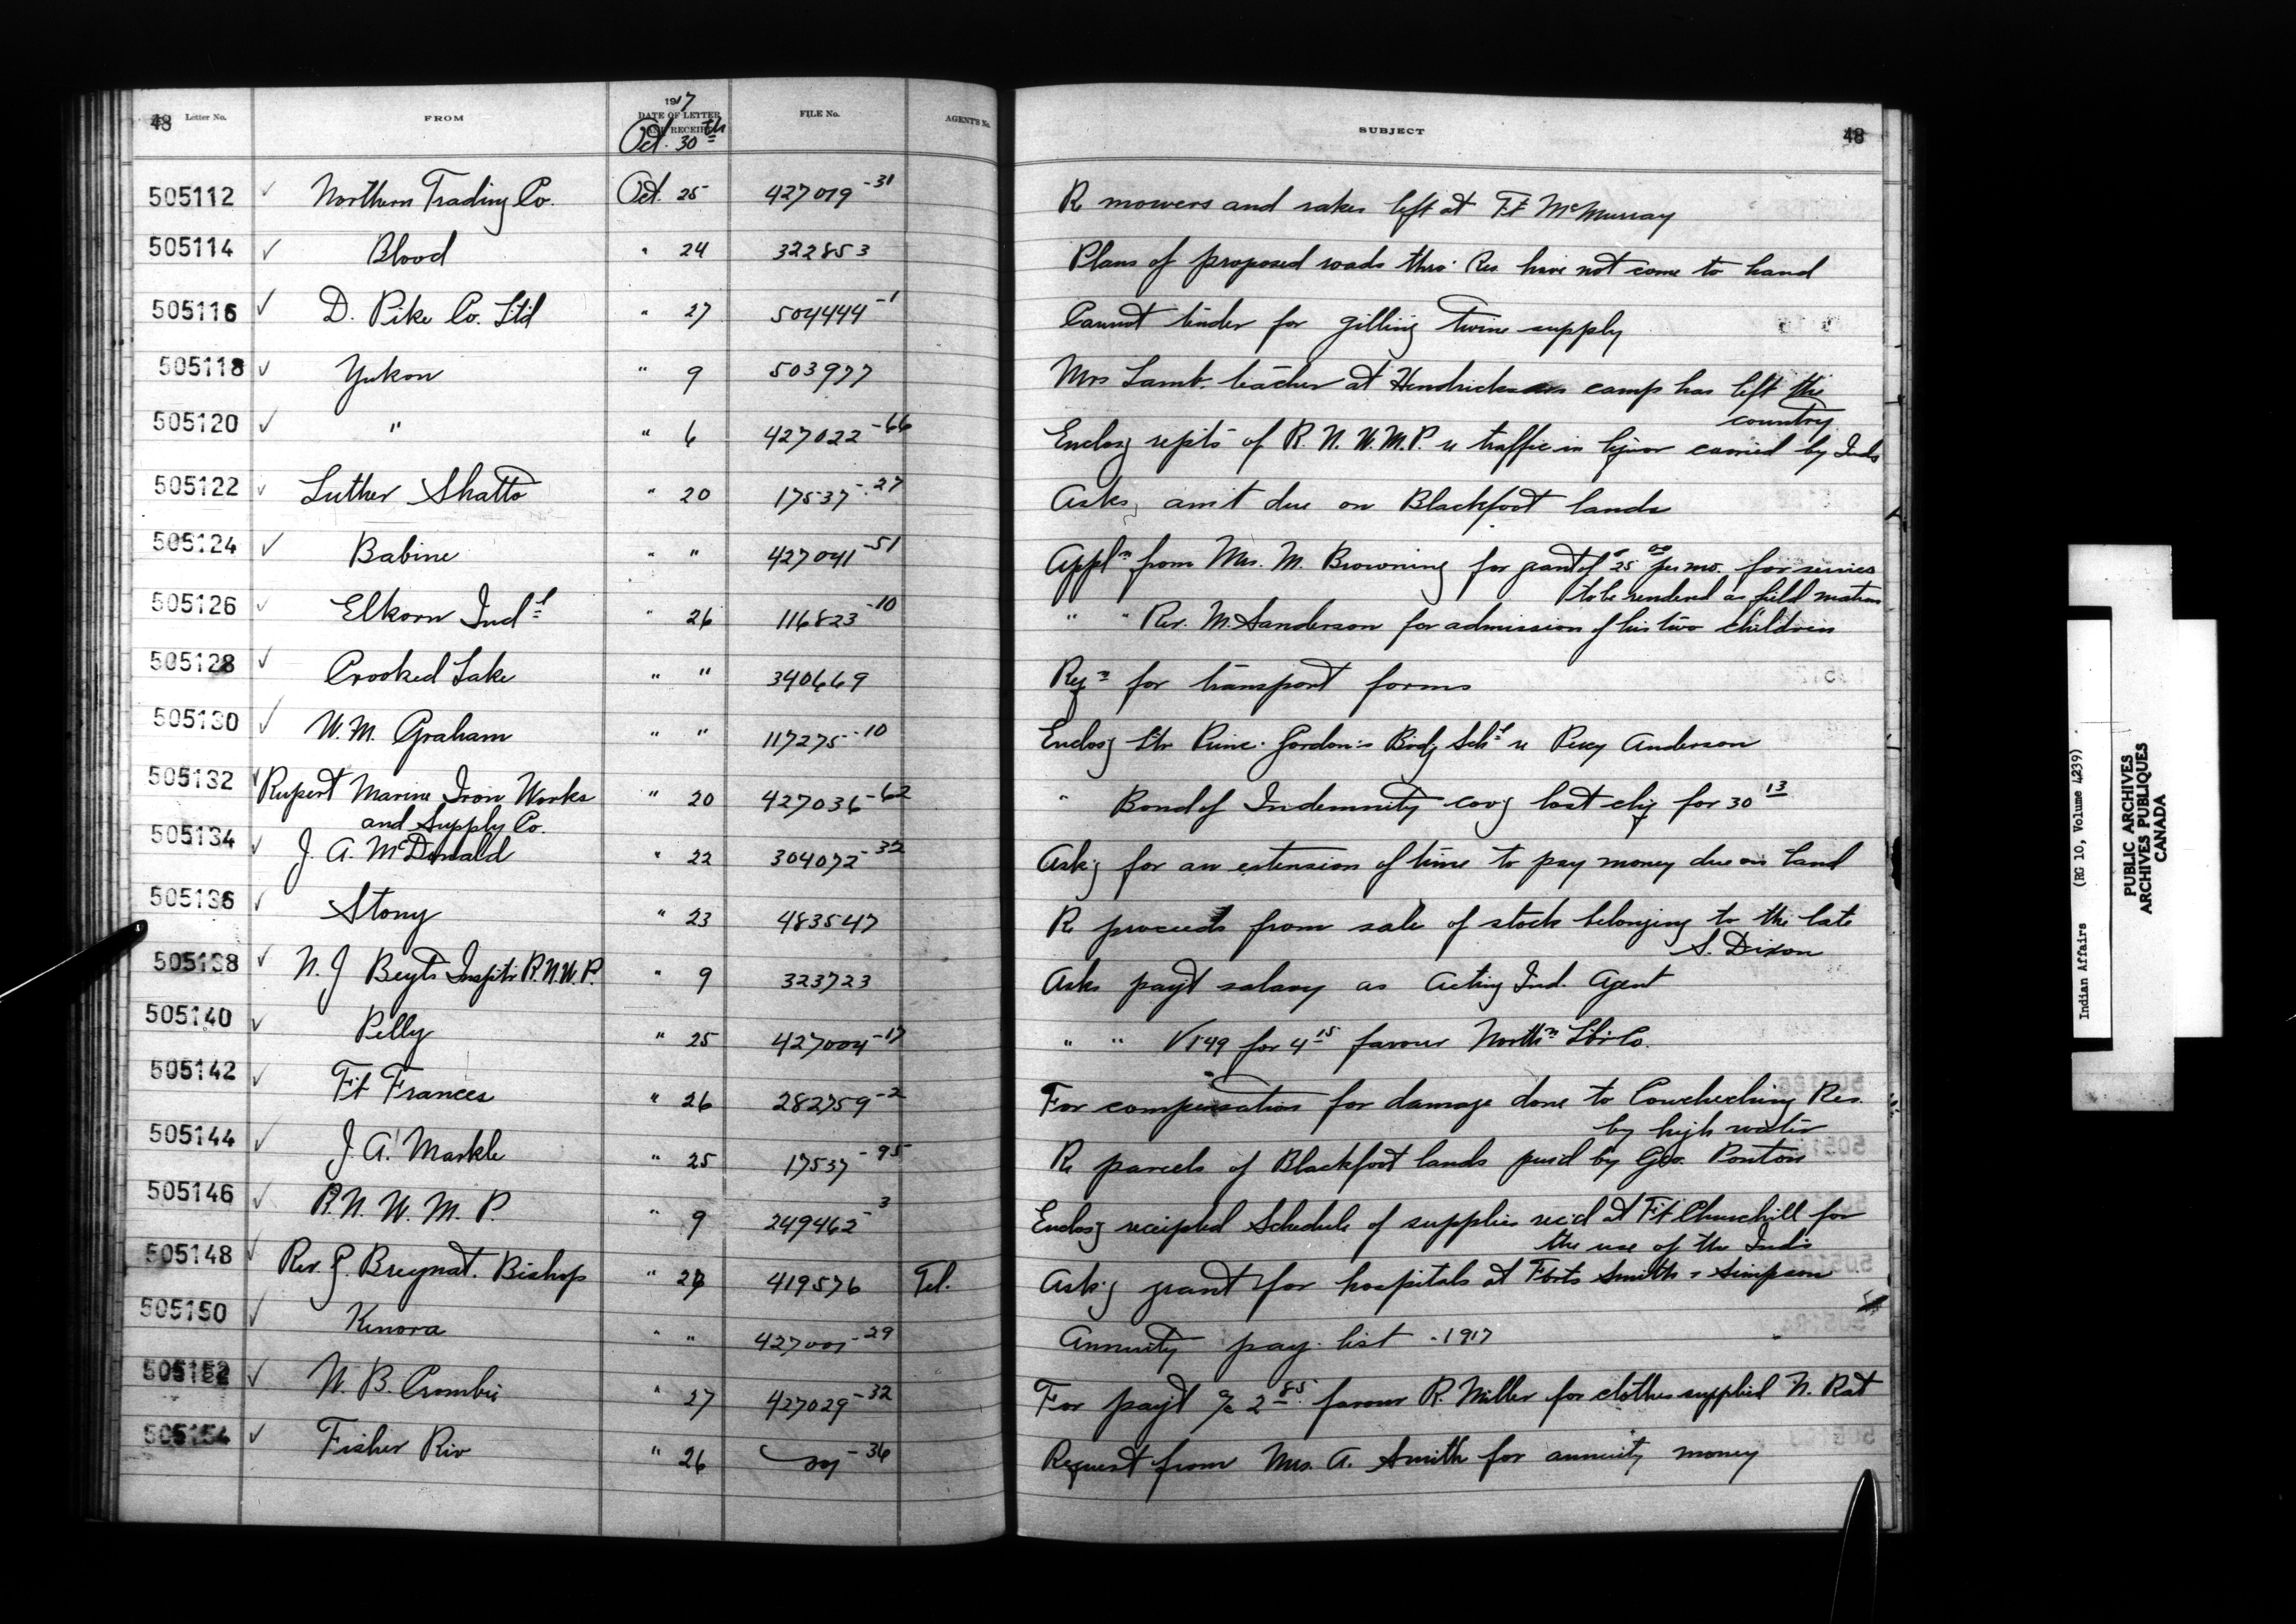 48 Letter No. FROM 1917 DATE OF LETTER AND RECEIPT FILE No. AGENT'S No. SUBJECT 48
Oct. 30th
505112 ✓ Northern Trading Co. Oct. 25 427019-31 R mowers and rakes left at Ft McMurray
505114 ✓ Blood " 24 322853 Plans of proposed roads thro' Res. have not come to hand
505116 ✓ D. Pike Co. Ltd " 27 504444-1 Cannot tender for gilling twine supply
505118 ✓ Yukon " 9 503977 Mrs Lamb. teacher at Hendrickson camp has left the
country
505120 ✓ " " 6 427022-66 Enclosg repts of R.N.W.M.P. re traffic in liquor carried by Inds
505122 ✓ Luther Shatto " 20 17537-27 Asks amt due on Blackfoot lands
505124 ✓ Babine " " 427041-51 Appln from Mrs. M. Browning for grant of $25 00 per mo. for services
to be rendered as field matron
505126 ✓ Elkorn Indl " 26 116823-10 " " Rev. M. Sanderson for admission of his two children
505128 ✓ Crooked Lake " " 340669 Reqn for transport forms
505130 ✓ W. M. Graham " " 117275-10 Enclosg ltr Princ. Gordon's Bodg Schl re Percy Anderson
505132 ✓ Rupert Marine Iron Works " 20 427036-62 " Bond of Indemnity covg lost chq for 30 13
and Supply Co.
505134 ✓ J. A. McDonald " 22 304072-32 Askg for an extension of time to pay money due on land
505136 ✓ Stony " 23 483547 R proceeds from sale of stock belonging to the late
S. Dixon
505138 ✓ N. J Beyts Insptr R.N.W.P. " 9 323723 Asks payt salary as Acting Ind. Agent
505140 ✓ Pelly " 25 427004-17 " " V149 for 4 15 favour Northn Lbr Co.
505142 ✓ Ft Frances " 26 282759-2 For compensation for damage done to Couchiching Res.
by high water
505144 ✓ J. A. Markle " 25 17537-95 R parcels of Blackfoot lands purd by Geo. Ponton
505146 ✓ R.N.W.M.P. " 9 249462-3 Enclosg receipted Schedule of supplies rec'd at Ft Churchill for
the use of the Inds
505148 ✓ Rev. G. Breynat. Bishop " 419576 Tel. Askg grant for hospitals at Forts Smith & Simpson
505150 ✓ Kenora " " 427001-29 Annuity pay list - 1917
505152 ✓ W. B. Crombie " 27 427029-32 For payt a/c 2 85 favour R. Miller for clothes supplied N. Rat
505154 ✓ Fisher Riv " 26 -36 Request from Mrs. A. Smith for annuity money
Indian Affairs (RG 10, Volume 4239)
PUBLIC ARCHIVES
ARCHIVES PUBLIQUES
CANADA